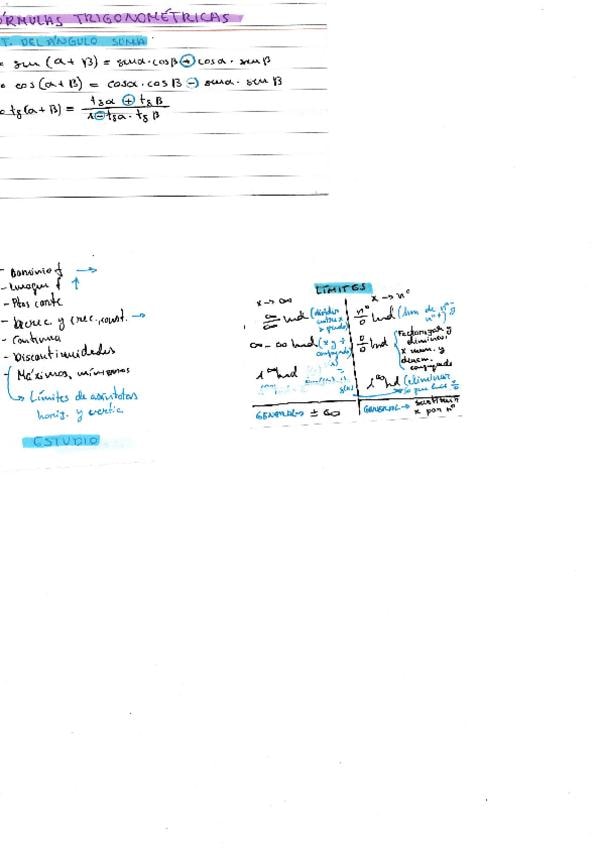 ÓRMULAS TRIGONOMÉTRICAS
T. DEL ÁNGULO SUMA
sen (α + β) = senα · cosβ + cosα · senβ
cos (α + β) = cosα · cosβ − senα · senβ
tg (α + β) = tgα + tgβ
1 − tgα · tgβ
- Dominio f →
- Imagen f ↑
- Ptos corte
- Decrec. y crec., const. →
- Continua
- Discontinuidades
- Máximos, mínimos
→ Límites de asíntotas
horiz. y vertic.
ESTUDIO
LÍMITES
x → ∞
∞/∞ Ind (dividir
entre x
∞ − ∞ Ind (x y ÷
conjugado
1^∞ Ind
GENERAL → ± ∞
x → nº
nº/0 Ind (lím de nº⁻ y
nº⁺)
0/0 Ind
Factorizar y
eliminar.
x num. y
denom.
conjugado
1^∞ Ind (eliminar
lo que hace
GENERAL → sustituir
x por nº